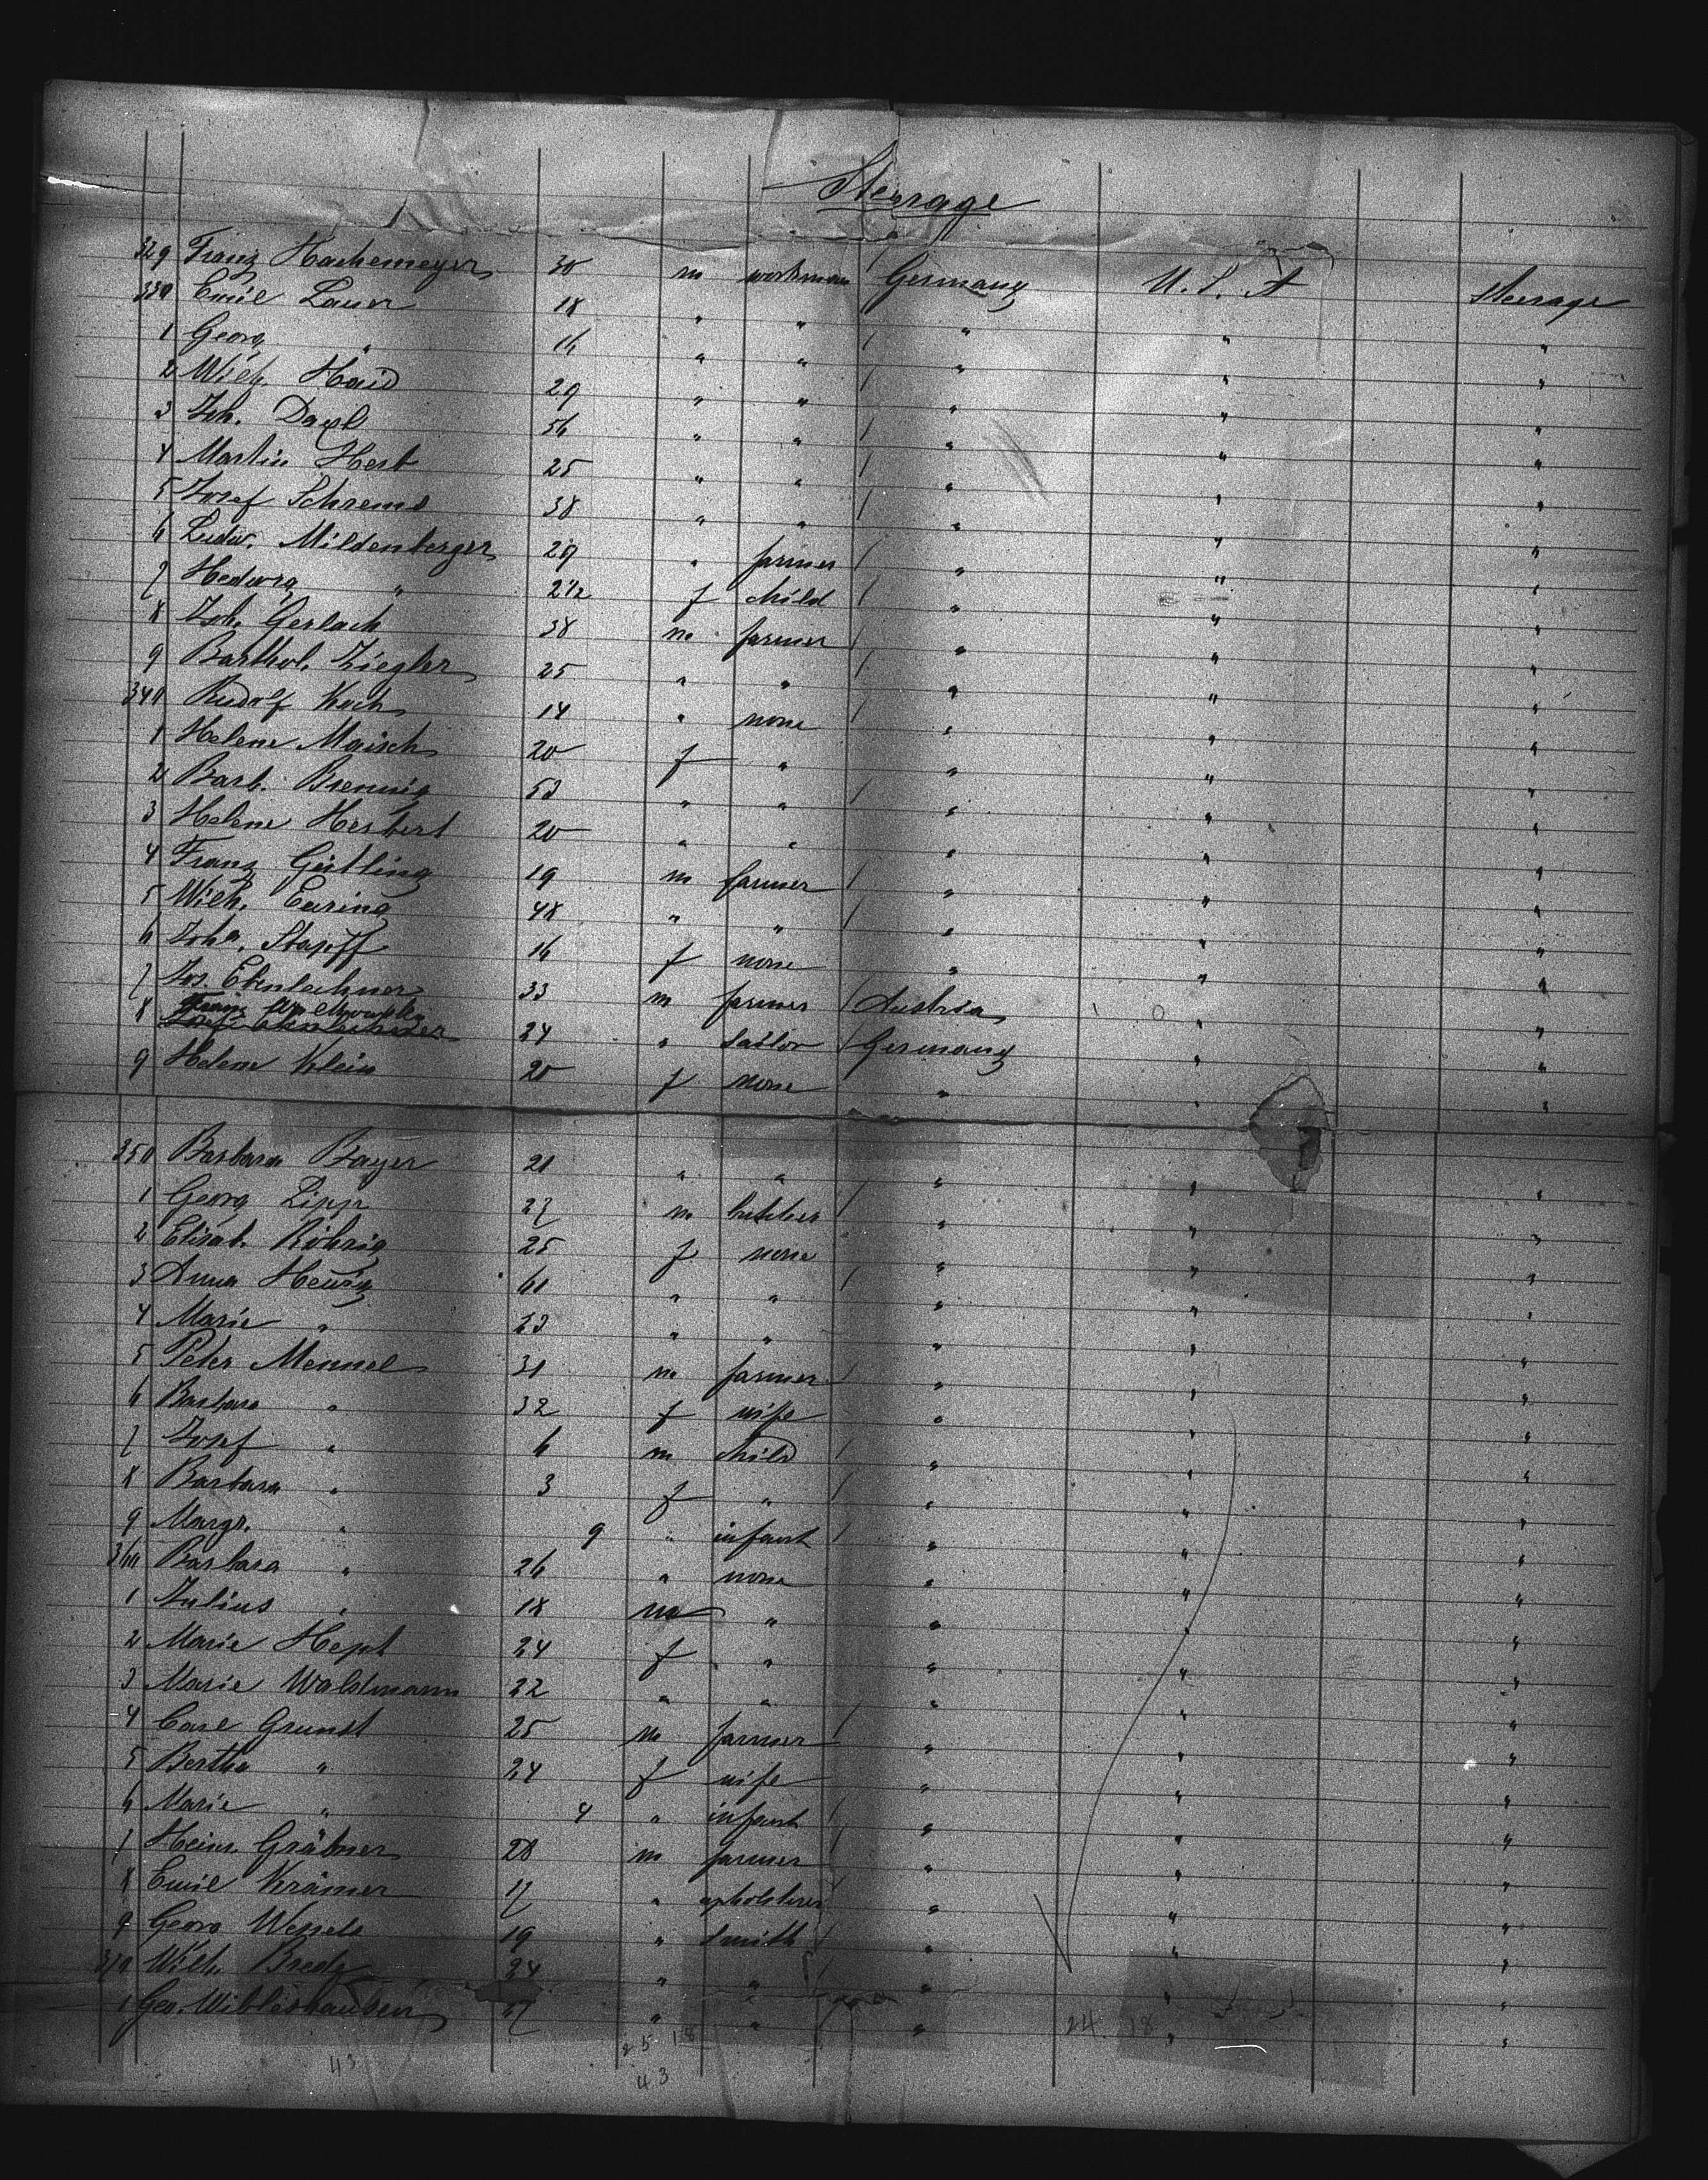 Steerage
329 Franz Hachemeyer 30 m workman / Germany U. S. A Steerage
330 Emil Lauer 18 " " " " "
1 Georg " 16 " " / " " "
2 Wilh. Haid 29 " " / " " "
3 Joh. Daxl 56 " " / " " "
4 Martin Herb 25 " " / " " "
5 Josef Schrems 38 " " / " " "
6 Ludw. Mildenberger 29 " farmer / " " "
7 Hedwig " 2 1/2 f child / " " "
8 Joh. Gerlach 38 m farmer / " " "
9 Barthol. Ziegler 25 " " / " " "
340 Rudolf Koch 14 " none / " " "
1 Helene Maisch 20 f " " " "
2 Barb. Brennig 53 " " / " " "
3 Helene Herbert 20 " " " " "
4 Franz Gütling 19 m farmer / " " "
5 Wilh. Euring 48 " " / " " "
6 Joha. Stapff 16 f none " " "
7 Jos. Ebenlechner 33 m farmer / Austria " "
8 Franz 24 " sailor / Germany " "
9 Helene Klein 20 f none " " "
350 Barbara Bayer 21 " " " " "
1 Georg Lipp 27 m butcher / " " "
2 Elisab. Röhrig 25 f none " " "
3 Anna Heusig 61 " " / " " "
4 Marie " 23 " " " " "
5 Peter Mennel 31 m farmer / " " "
6 Barbara " 32 f wife " " "
7 Josef " 6 m child / " " "
8 Barbara " 3 f " / " " "
9 Margr. " 9 " infant / " " "
360 Barbara " 26 " none " " "
1 Julius " 18 m " " " "
2 Marie Hept 24 f " " " "
3 Marie Waldmann 22 " " " " "
4 Carl Grunst 25 m farmer / " " "
5 Bertha " 24 f wife " " "
6 Marie " 4 " infant / " " "
7 Heinr. Gräbner 28 m farmer / " " "
8 Emil Krämer 17 " upholsterer " " "
9 Georg Wessels 19 " smith / " " "
370 Wilh. Brede 24 " " / " " "
1 Geo. Wiblishauser 27 " " " " "
43 25 18 24 18
43